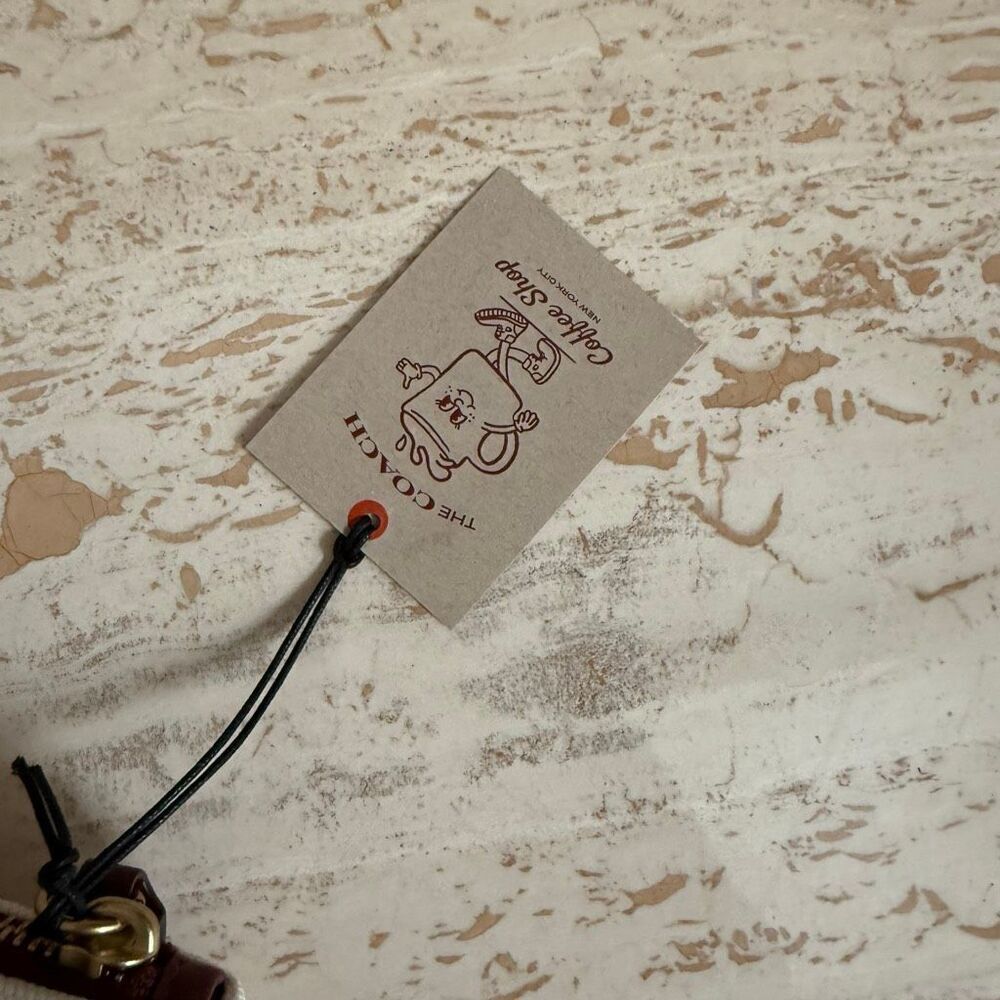 THE COACH
Coffee Shop
NEW YORK CITY